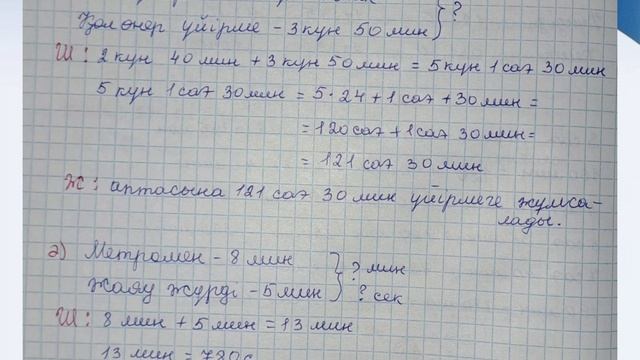 Қол өнер үйірме - 3 күн 50 мин } ?
Ш: 2 күн 40 мин + 3 күн 50 мин = 5 күн 1 сағ 30 мин
5 күн 1 сағ 30 мин = 5·24 + 1 сағ + 30 мин =
= 120 сағ + 1 сағ 30 мин =
= 121 сағ 30 мин
Ж: аптасына 121 сағ 30 мин үйірмеге жұмса-
лады.
ә) Метромен - 8 мин } ? мин
Жаяу жүрді - 5 мин } ? сек
Ш: 8 мин + 5 мин = 13 мин
13 мин = 780 с